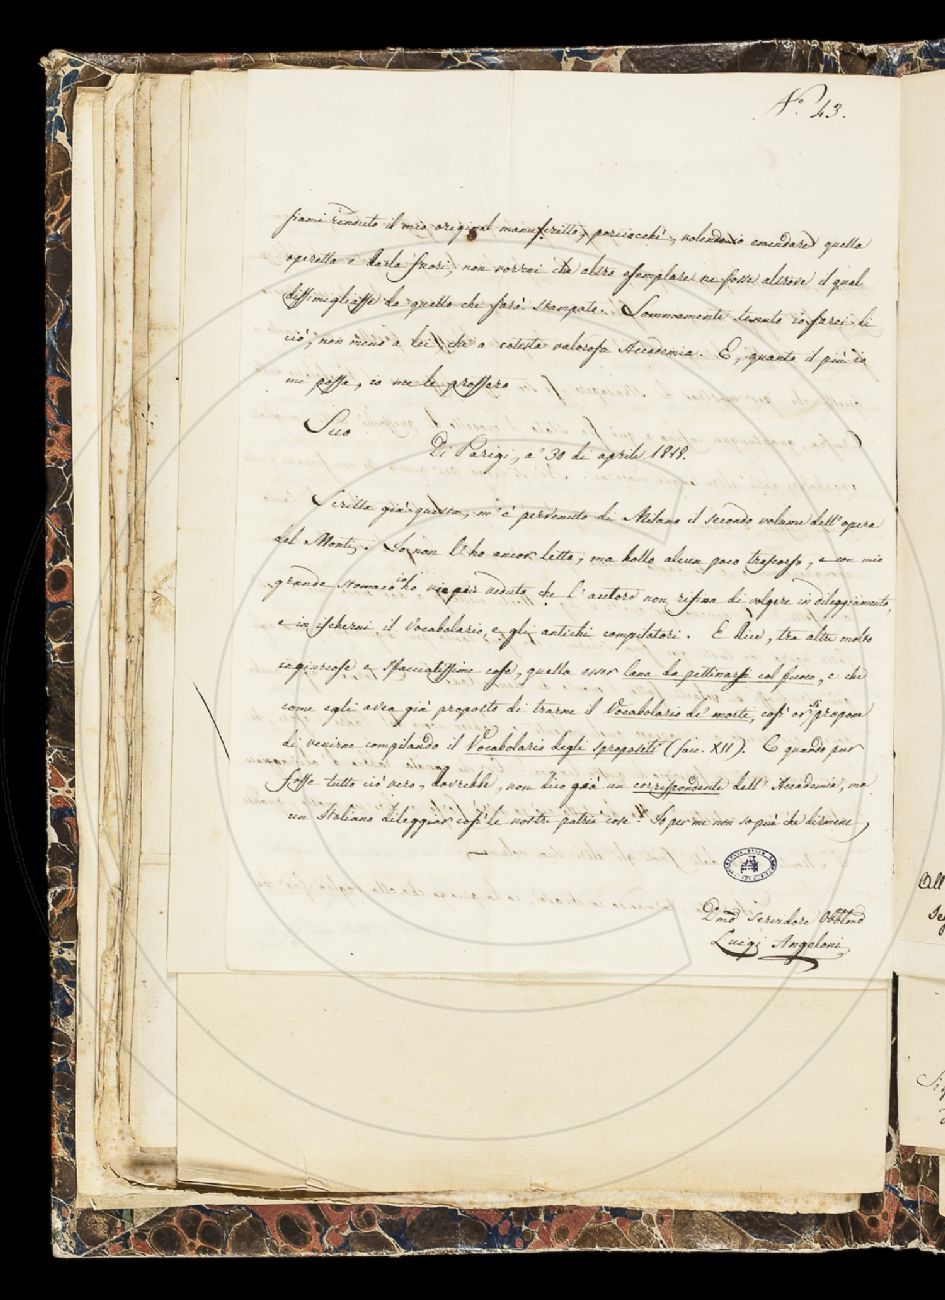 N.º 43.
siami renduto il mio original manuscritto; perciocchè, volendo io emendare quella
operetta e darla fuori, non vorrei che altro esemplare ne fosse altrove il qual
dissimigliasse da quello che sarà stampato. Sommamente tenuto io sarei di
ciò, non meno a lei, che a cotesta valorosa Accademia. E, quanto il più io
mi possa, io me le proffero
Suo
Di Parigi, a' 30 di aprile 1818.
Scritta già questa, m'è pervenuto di Milano il secondo volume dell'opera
del Monti. Io non l'ho ancor letto, ma hollo alcun poco trascorso, e con mio
grande stomaco ho veduto che l'autore non rifina di volgere in dileggiamento,
e in ischerni il Vocabolario, e gli antichi compilatori. E dice, tra altre molte
ingiuriose e sfacciatissime cose, quella esser lana da pettinarsi col fuoco, e che
come egli avea già proposto di trarne il Vocabolario de' morti, così or si propone
di venirne compilando il Vocabolario degli spropositi (fac. XII). E quando pur
fosse tutto ciò vero, dovrebbe, non dico già un corrispondente dell'Accademia, ma
un Italiano dileggiar così le nostre patrie cose? Io per me non so più che dirmene,
Dmo Servidore Obblmo
Luigi Angeloni
All